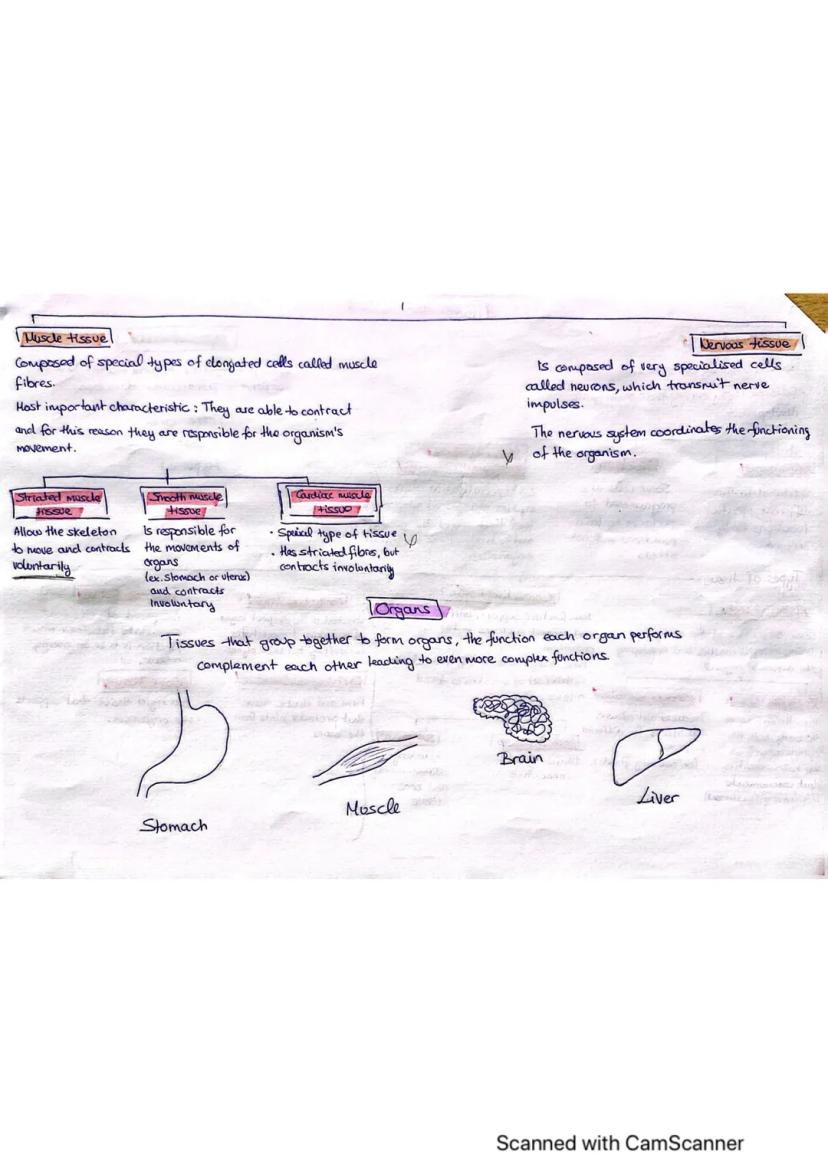 Muscle tissue
Composed of special types of elongated cells called muscle
fibres.
Most important characteristic: They are able to contract
and for this reason they are responsible for the organism's
movement.
Nervous tissue
Is composed of very specialised cells
called neurons, which transmit nerve
impulses.
The nervous system coordinates the functioning
of the organism.
Striated muscle
tissue
Allow the skeleton
to move and contracts
voluntarily
Smooth muscle
tissue
Is responsible for
the movements of
organs
(ex. stomach or uterus)
and contracts
Involuntary
Cardiac muscle
tissue
· Special type of tissue
· Has striated fibres, but
contracts involuntarily
Organs
Tissues that group together to form organs, the function each organ performs
complement each other leading to even more complex functions.
Stomach
Muscle
Brain
Liver
Scanned with CamScanner